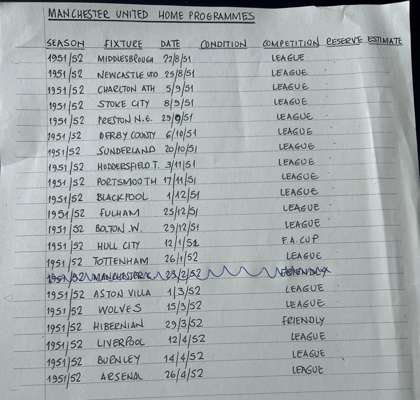 MANCHESTER UNITED HOME PROGRAMMES
SEASON FIXTURE DATE CONDITION COMPETITION RESERVE ESTIMATE
1951/52 MIDDLESBROUGH 22/8/51 LEAGUE
1951/52 NEWCASTLE UTD 25/8/51 LEAGUE
1951/52 CHARLTON ATH 5/9/51 LEAGUE
1951/52 STOKE CITY 8/9/51 LEAGUE
1951/52 PRESTON N.E. 29/9/51 LEAGUE
1951/52 DERBY COUNTY 6/10/51 LEAGUE
1951/52 SUNDERLAND 20/10/51 LEAGUE
1951/52 HUDDERSFIELD T. 3/11/51 LEAGUE
1951/52 PORTSMOUTH 17/11/51 LEAGUE
1951/52 BLACKPOOL 1/12/51 LEAGUE
1951/52 FULHAM 25/12/51 LEAGUE
1951/52 BOLTON W. 29/12/51 LEAGUE
1951/52 HULL CITY 12/1/52 F.A. CUP
1951/52 TOTTENHAM 26/1/52 LEAGUE
1951/52 23/2/52
1951/52 ASTON VILLA 1/3/52 LEAGUE
1951/52 WOLVES 15/3/52 LEAGUE
1951/52 HIBERNIAN 29/3/52 FRIENDLY
1951/52 LIVERPOOL 12/4/52 LEAGUE
1951/52 BURNLEY 14/4/52 LEAGUE
1951/52 ARSENAL 26/4/52 LEAGUE